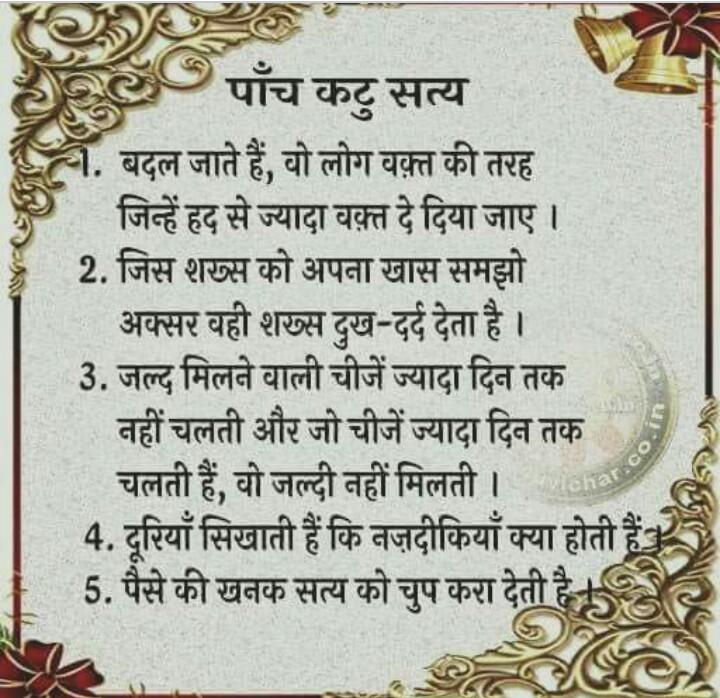 पाँच कटु सत्य
1. बदल जाते हैं, वो लोग वक़्त की तरह
जिन्हें हद से ज्यादा वक़्त दे दिया जाए ।
2. जिस शख्स को अपना खास समझो
अक्सर वही शख्स दुख-दर्द देता है ।
3. जल्द मिलने वाली चीजें ज्यादा दिन तक
नहीं चलती और जो चीजें ज्यादा दिन तक
चलती हैं, वो जल्दी नहीं मिलती ।
4. दूरियाँ सिखाती हैं कि नज़दीकियाँ क्या होती हैं ।
5. पैसे की खनक सत्य को चुप करा देती है ।